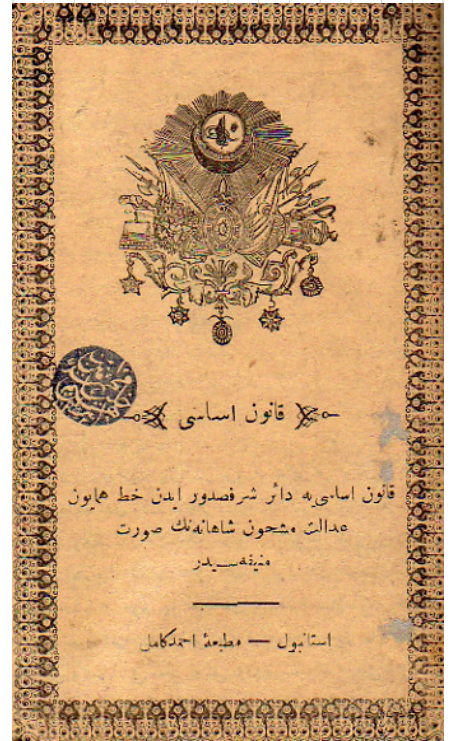 قانون اساسى
قانون اساسى‌يه دائر شرفصدور ايدن خط همايون
عدالت مشحون شاهانه‌نك صورت
منيفه‌سيدر
استانبول — مطبعۀ احمد كامل